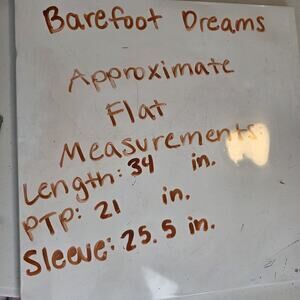 Barefoot Dreams
Approximate
Flat
Measurements:
Length: 34 in.
PTP: 21 in.
Sleeve: 25.5 in.